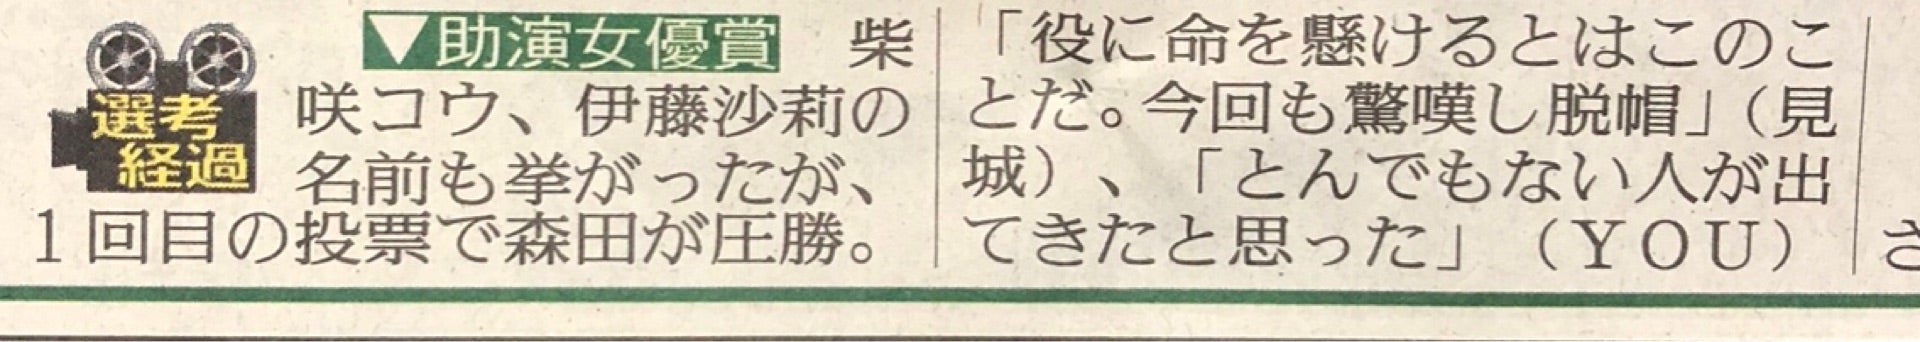 選考
経過
▼助演女優賞　柴
咲コウ、伊藤沙莉の
名前も挙がったが、
1回目の投票で森田が圧勝。
「役に命を懸けるとはこのこ
とだ。今回も驚嘆し脱帽」（見
城）、「とんでもない人が出
てきたと思った」（ＹＯＵ）
さ